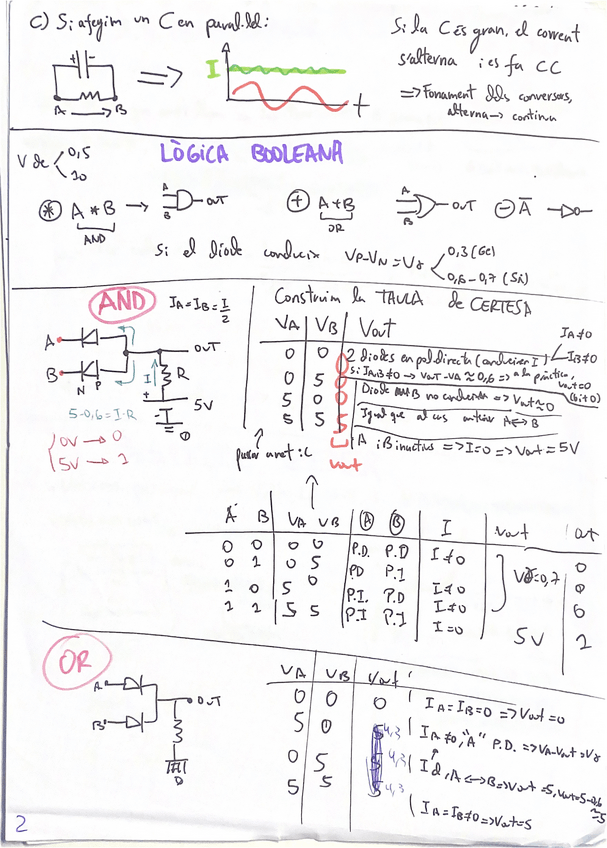 c) Si afegim un C en paral·lel:
Si la C és gran, el corrent
s'alterna i es fa CC
=> Fonament dels conversors,
alterna -> contínua
+ -
A -> B
=>
I
t
LÒGICA BOOLEANA
V de < 0,5
10
* A * B -> A B OUT
AND
+ A + B
OR
A B OUT
- A̅
Si el díode condueix Vp - VN = Vγ < 0,3 (Ge)
0,6 - 0,7 (Si)
AND
IA = IB = I/2
A
B
N P
OUT
I
R
+
5V
-
5 - 0,6 = I·R
0V -> 0
5V -> 1
Construim la TAULA de CERTESA
VA VB Vout
0 0 0 2 díodes en pol. directa (condueixen I) < IA ≠ 0
IB ≠ 0
Si IA,IB ≠ 0 -> Vout - VA ≈ 0,6 => a la pràctica,
Vout = 0
(bit 0)
0 5 0 Díode B no condueix => Vout ≈ 0
5 0 0 Igual que al cas anterior A <-> B
5 5 5 A i B inactius => I = 0 => Vout = 5V
Vout
A B VA VB A B I Vout out
0 0 0 0 P.D. P.D I ≠ 0 0
0 1 0 5 PD P.I I ≠ 0 0
1 0 5 0 P.I. P.D I ≠ 0 0
1 1 5 5 P.I P.I I = 0 5V 1
Vγ = 0,7
OR
A
B
OUT
VA VB Vout
0 0 0 IA = IB = 0 => Vout = 0
5 0 5 4,3 IA ≠ 0, "A" P.D. => VA - Vout = Vγ
0 5 5 4,3 Id, A <-> B => Vout = 5, Vout = 5 - 0,6
≈ 5
5 5 5 4,3 IA = IB ≠ 0 => Vout = 5
2